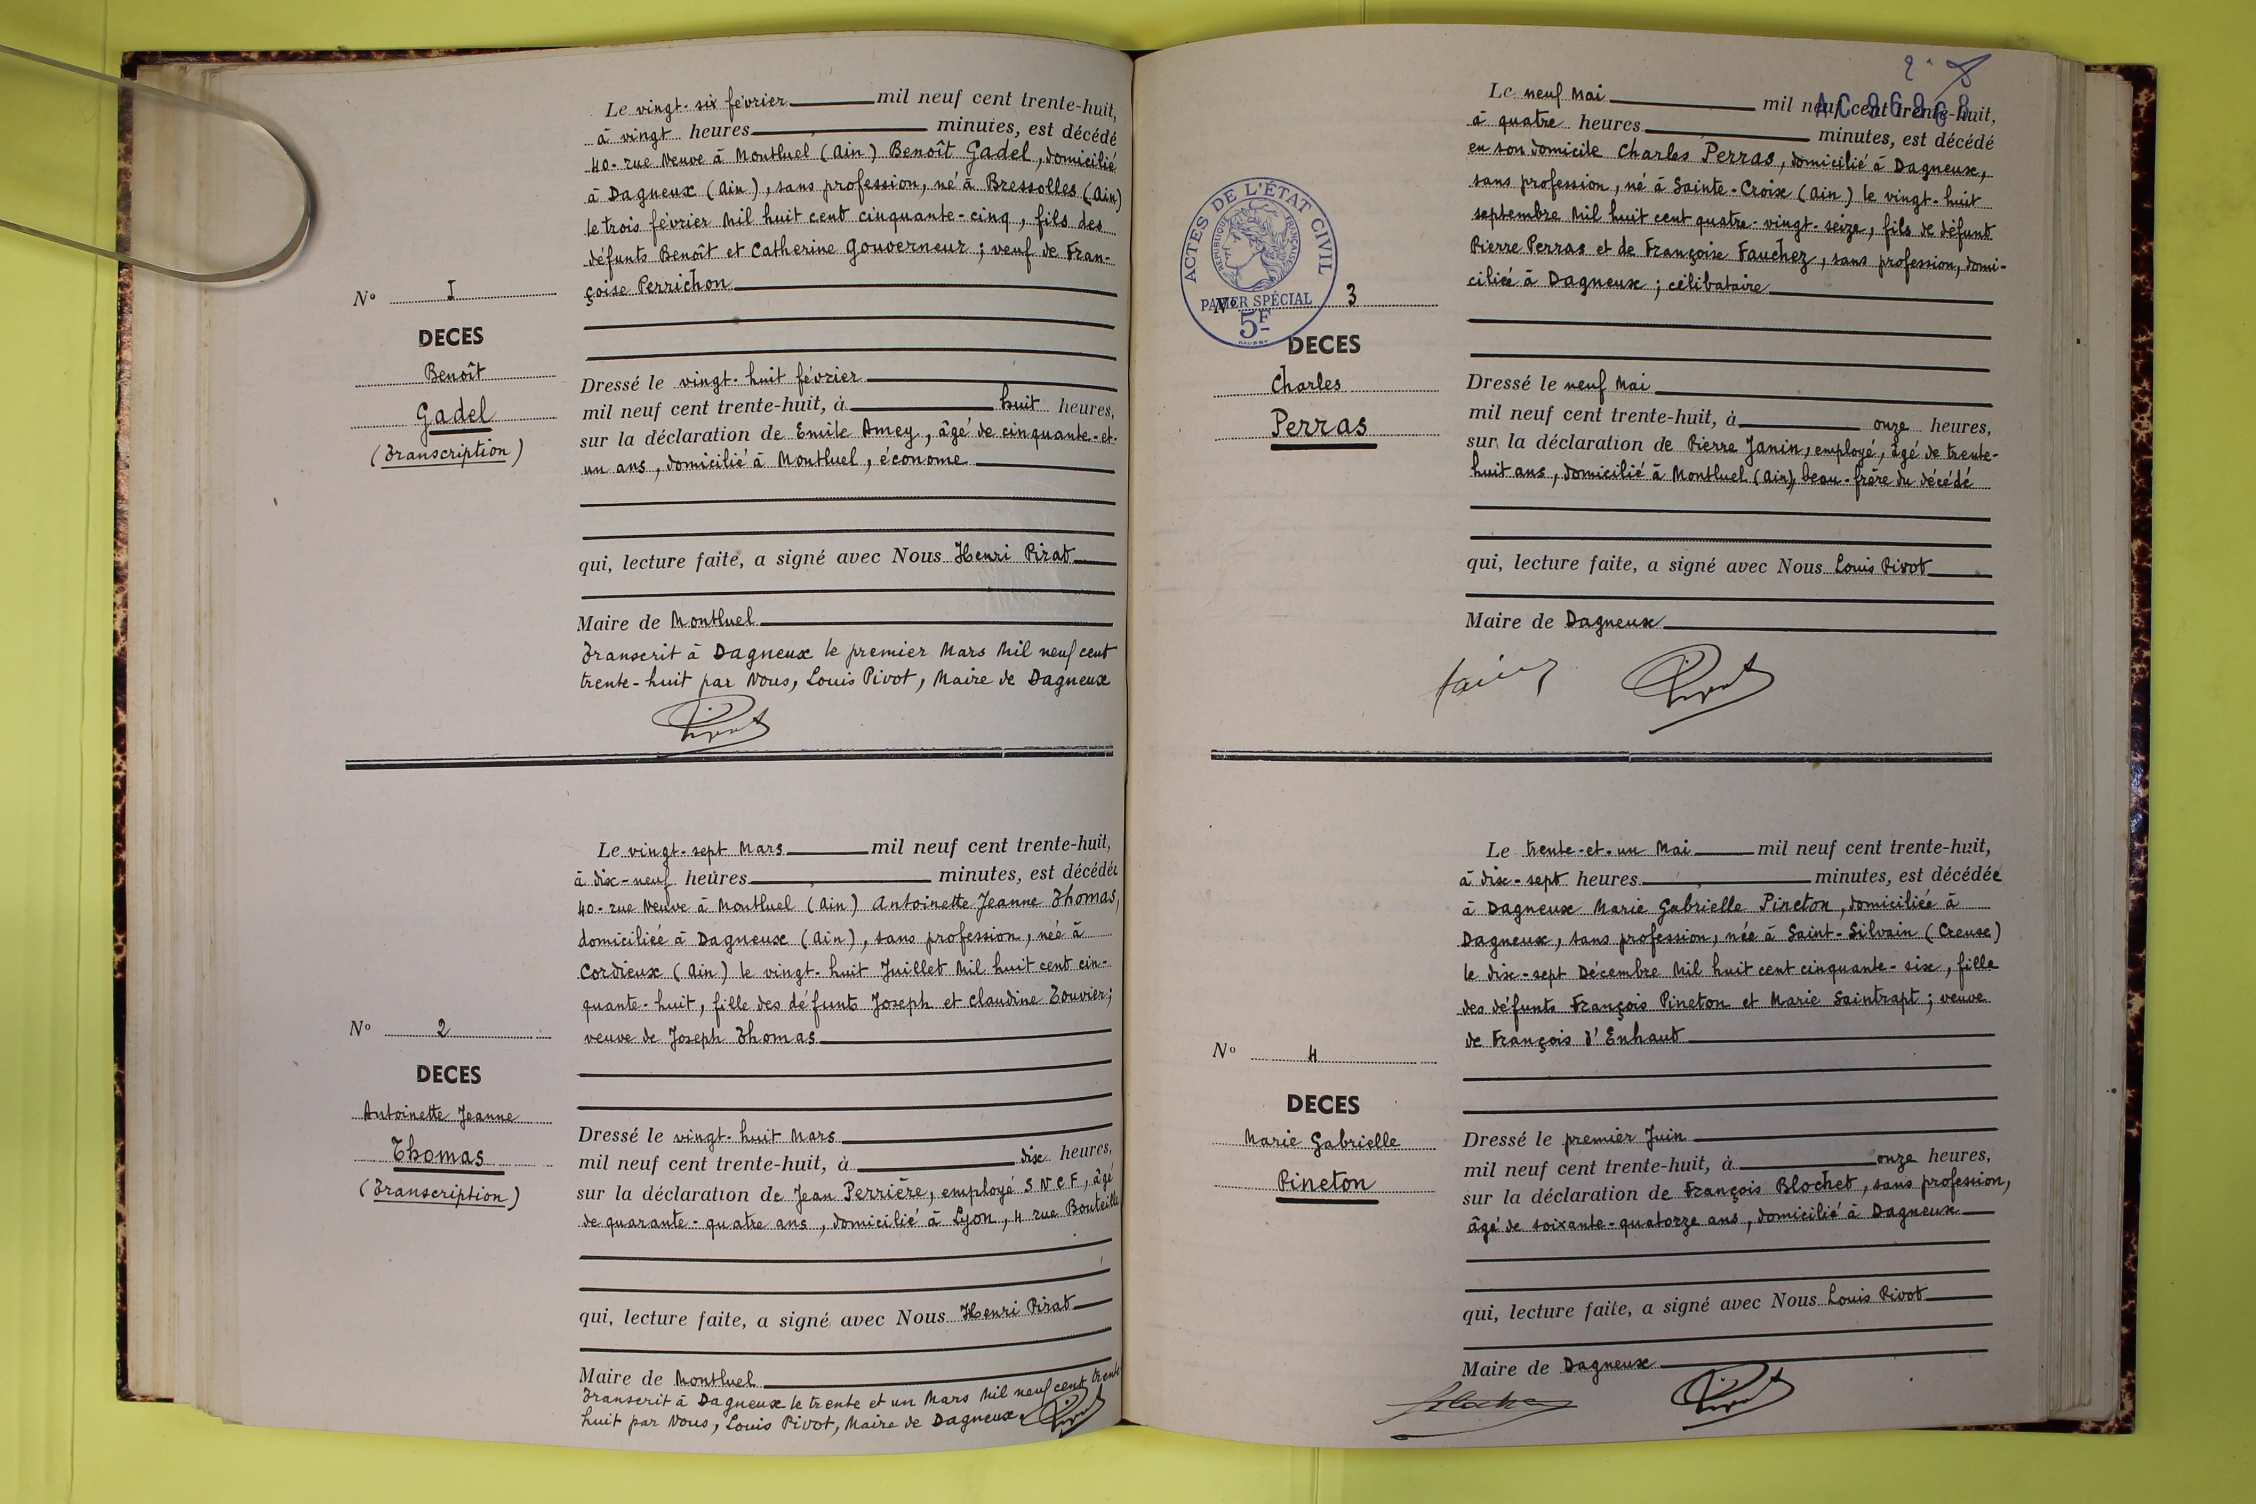 Le vingt-six février mil neuf cent trente-huit,
à vingt heures minutes, est décédé
40-rue Neuve à Montluel (Ain) Benoît Gadel, domicilié
à Dagneux (Ain), sans profession, né à Bressolles (Ain)
le trois février Mil huit cent cinquante-cinq, fils des
défunts Benoît et Catherine Gouverneur ; veuf de Fran-
çoise Perrichon
N° I
DECES
Benoît
Gadel
(Transcription)
Dressé le vingt-huit février
mil neuf cent trente-huit, à huit heures,
sur la déclaration de Emile Amey, âgé de cinquante-et-
un ans, domicilié à Montluel, économe
qui, lecture faite, a signé avec Nous Henri Pirat
Maire de Montluel
Transcrit à Dagneux le premier Mars Mil neuf cent
trente-huit par Nous, Louis Pivot, Maire de Dagneux
Pivot
Le vingt-sept Mars mil neuf cent trente-huit,
à dix-neuf heures minutes, est décédée
40-rue Neuve à Montluel (Ain) Antoinette Jeanne Thomas,
domiciliée à Dagneux (Ain), sans profession, née à
Cordieux (Ain) le vingt-huit Juillet Mil huit cent cin-
quante-huit, fille des défunts Joseph et Claudine Touvier ;
veuve de Joseph Thomas
N° 2
DECES
Antoinette Jeanne
Thomas
(Transcription)
Dressé le vingt-huit Mars
mil neuf cent trente-huit, à dix heures,
sur la déclaration de Jean Perrière, employé SNCF, âgé
de quarante-quatre ans, domicilié à Lyon, 4 rue Bouteille
qui, lecture faite, a signé avec Nous Henri Pirat
Maire de Montluel
Transcrit à Dagneux le trente et un Mars Mil neuf cent trente
huit par Nous, Louis Pivot, Maire de Dagneux. Pivot
2
AC 86868
Le neuf Mai mil neuf cent trente-huit,
à quatre heures minutes, est décédé
en son domicile Charles Perras, domicilié à Dagneux,
sans profession, né à Sainte-Croix (Ain) le vingt-huit
septembre Mil huit cent quatre-vingt-seize, fils de défunt
Pierre Perras et de Françoise Fauchez, sans profession, domi-
ciliée à Dagneux ; célibataire
ACTES DE L'ÉTAT CIVIL
RÉPUBLIQUE FRANÇAISE
PAPIER SPÉCIAL
5F
N° 3
DECES
Charles
Perras
Dressé le neuf Mai
mil neuf cent trente-huit, à onze heures,
sur la déclaration de Pierre Janin, employé, âgé de trente-
huit ans, domicilié à Montluel (Ain), beau-frère du décédé
qui, lecture faite, a signé avec Nous Louis Pivot
Maire de Dagneux
Janin Pivot
Le trente-et-un Mai mil neuf cent trente-huit,
à dix-sept heures minutes, est décédée
à Dagneux Marie Gabrielle Pineton, domiciliée à
Dagneux, sans profession, née à Saint-Silvain (Creuse)
le dix-sept Décembre Mil huit cent cinquante-six, fille
des défunts François Pineton et Marie Saintrapt ; veuve
de François d'Enhaut
N° 4
DECES
Marie Gabrielle
Pineton
Dressé le premier Juin
mil neuf cent trente-huit, à onze heures,
sur la déclaration de François Blochet, sans profession,
âgé de soixante-quatorze ans, domicilié à Dagneux
qui, lecture faite, a signé avec Nous Louis Pivot
Maire de Dagneux
Blochet Pivot